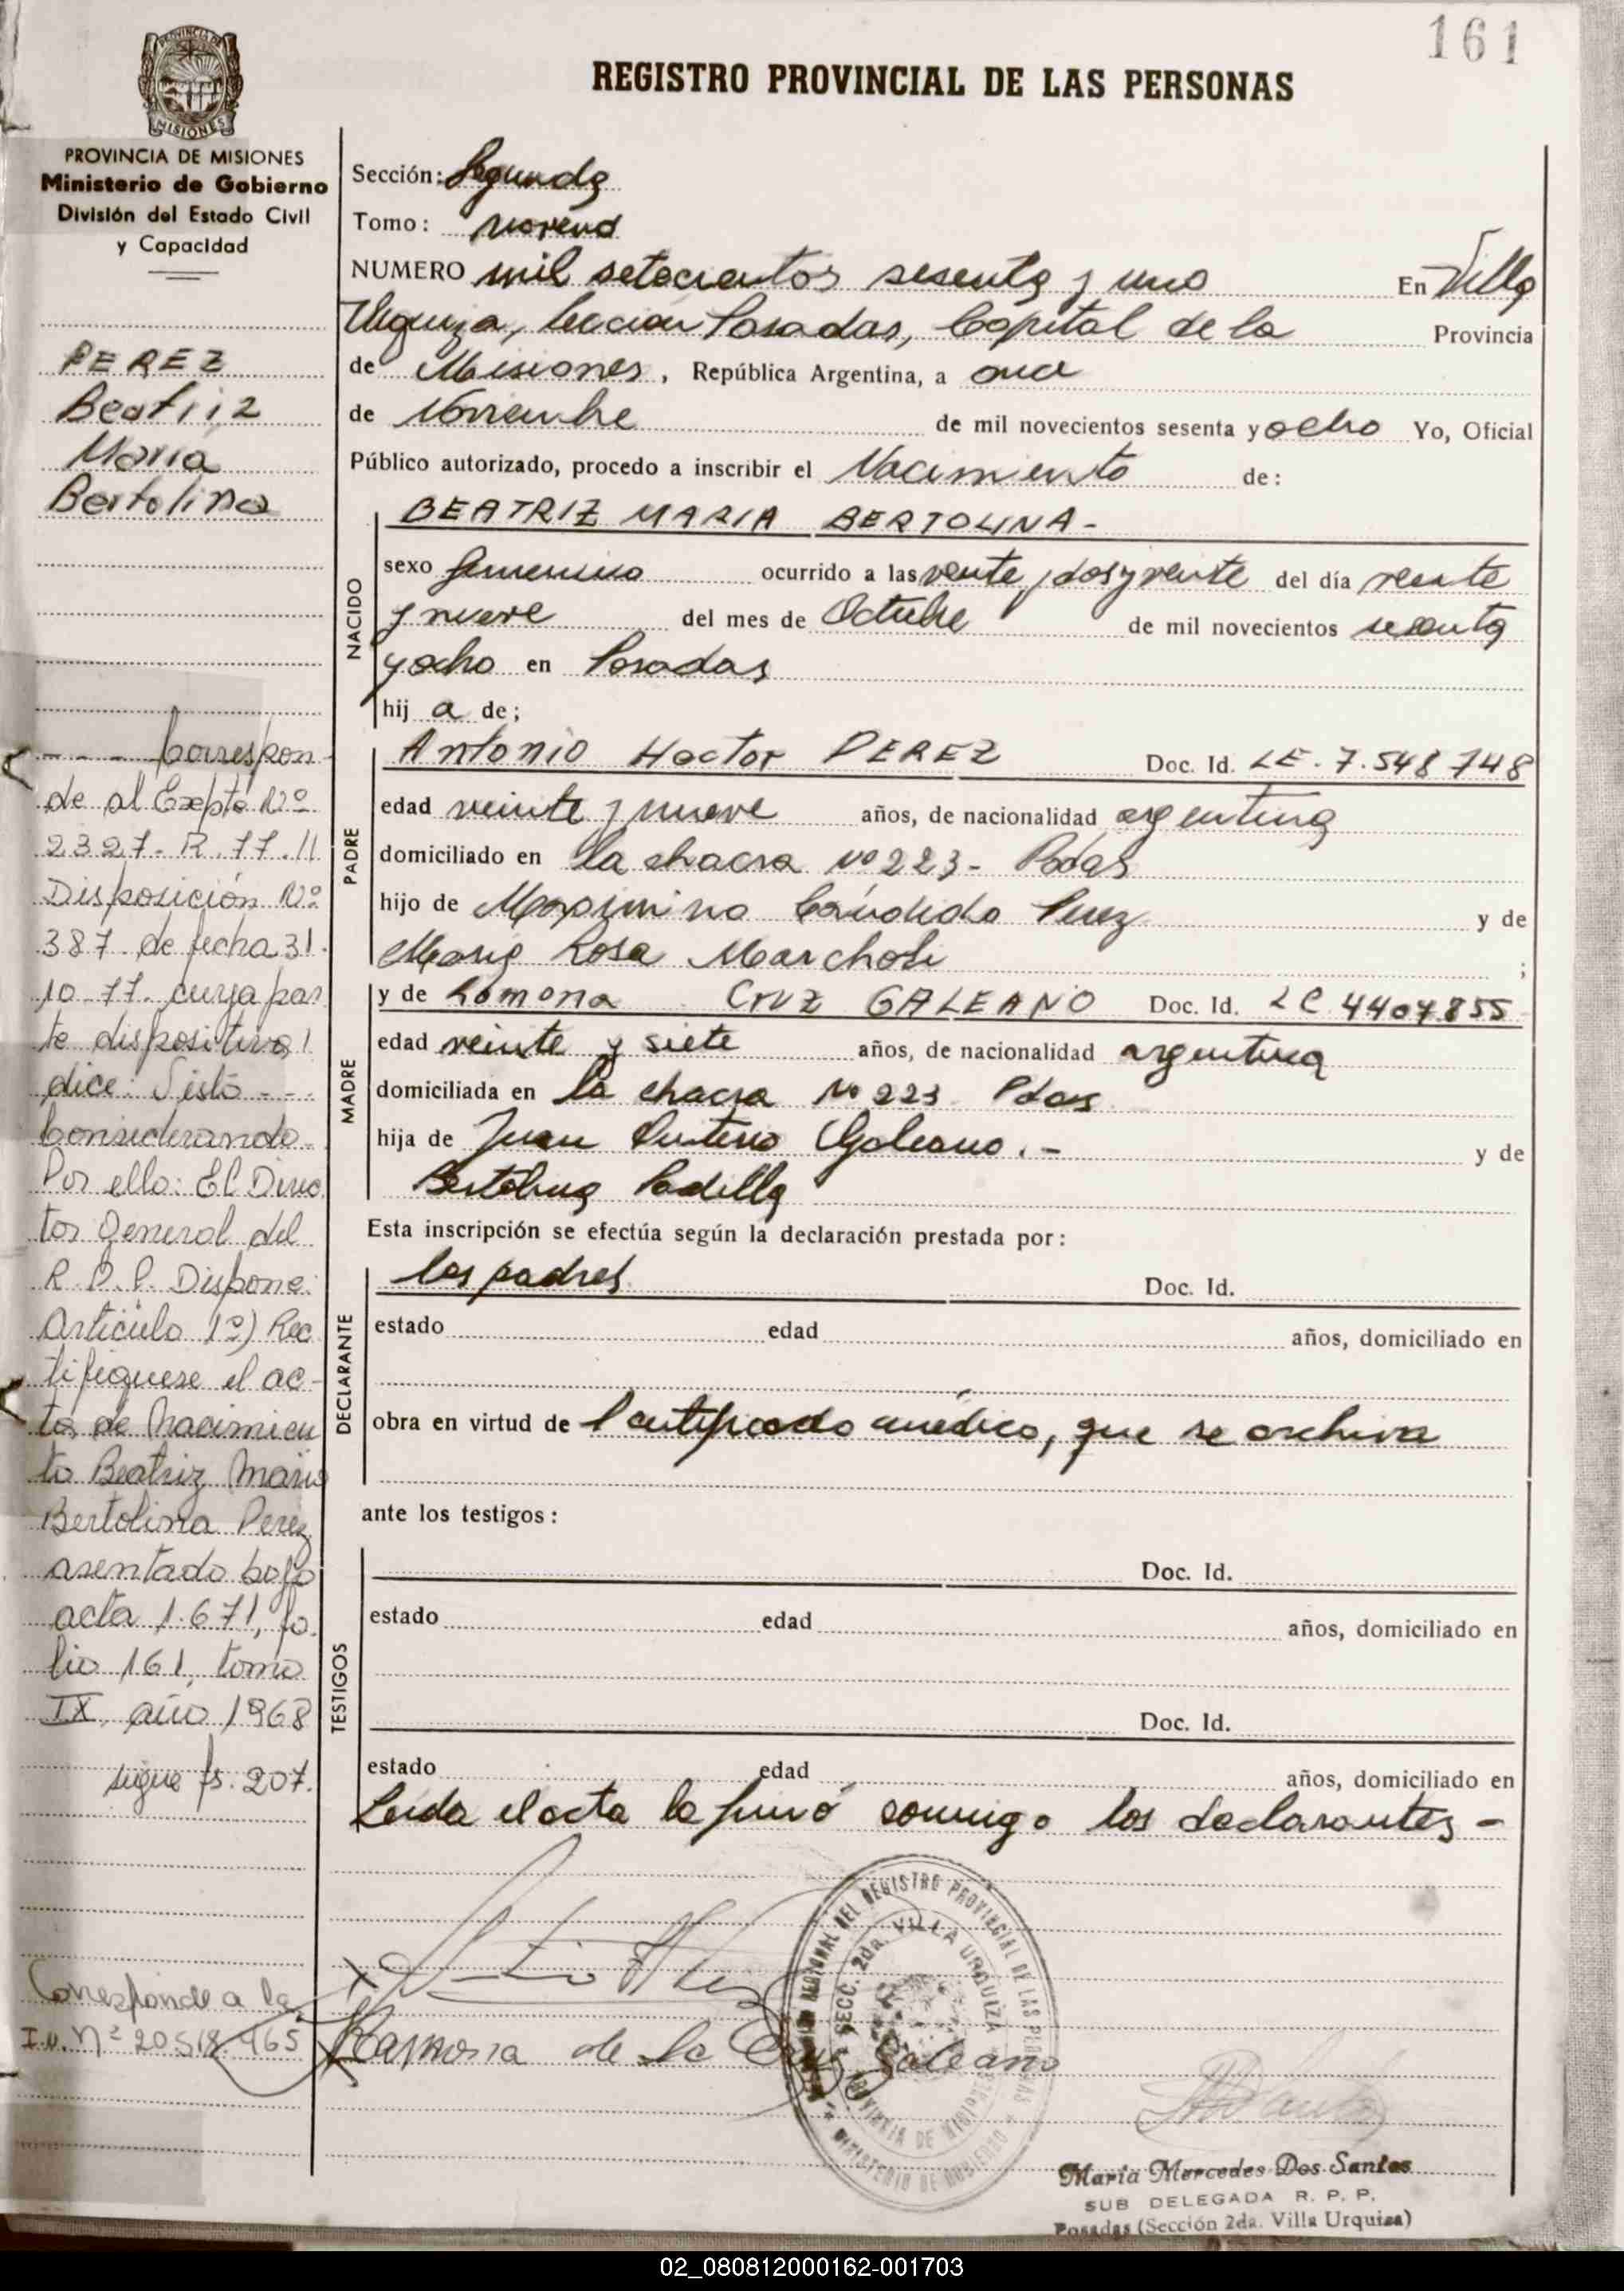 161
REGISTRO PROVINCIAL DE LAS PERSONAS
PROVINCIA DE MISIONES
MISIONES
PROVINCIA DE MISIONES
Ministerio de Gobierno
División del Estado Civil
y Capacidad
PEREZ
Beatriz
María
Bertolina
- - - Correspon-
de al Expte Nº
2327-R.77.//
Disposición Nº
387 de fecha 31.
10.77. cuya par
te dispositiva
dice: Visto - - -
Considerando
Por ello: El Direc
tor General del
R.P.P. Dispone:
Artículo 1º) Rec
tifiquese el ac-
ta de Nacimien
to Beatriz María
Bertolina Perez
asentado bajo
acta 1.671, fo.
lio 161, tomo
IX, año 1968
sigue fs. 207.
Corresponde a la
I.N. Nº 20518.465
Sección: Segunda
Tomo: Noveno
NUMERO mil setecientos sesenta y uno En Villa
Urquiza, Sección Posadas, Capital de la Provincia
de Misiones, República Argentina, a once
de Noviembre de mil novecientos sesenta y ocho Yo, Oficial
Público autorizado, procedo a inscribir el Nacimiento de:
NACIDO
BEATRIZ MARIA BERTOLINA-
sexo femenino ocurrido a las veinte y del día veinte
y nueve del mes de Octubre de mil novecientos sesenta
y ocho en Posadas
hij a de;
PADRE
Antonio Hector PEREZ Doc. Id. LE. 7.548 748
edad veinte y nueve años, de nacionalidad argentina
domiciliado en la chacra Nº 223- Pdas
hijo de Maximino Cándido Perez y de
María Rosa ;
MADRE
y de Romona CRUZ GALEANO Doc. Id. LC 4407.855
edad veinte y siete años, de nacionalidad argentina
domiciliada en la chacra Nº 223 Pdas
hija de Juan Galeano.- y de
Bertolina Padilla
Esta inscripción se efectúa según la declaración prestada por:
DECLARANTE
los padres Doc. Id.
estado edad años, domiciliado en
obra en virtud de Certificado médico, que se archiva
ante los testigos:
TESTIGOS
Doc. Id.
estado edad años, domiciliado en
Doc. Id.
estado edad años, domiciliado en
Leida el acta la firmó conmigo los declarantes-
Ramona de la Cruz Galeano
REGIONAL DEL REGISTRO PROVINCIAL DE LAS PERSONAS
SECC. 2da. VILLA URQUIZA
PROVINCIA DE MISIONES
MINISTERIO DE GOBIERNO
María Mercedes Dos Santos
SUB DELEGADA R. P. P.
Posadas (Sección 2da. Villa Urquiza)
02_080812000162-001703